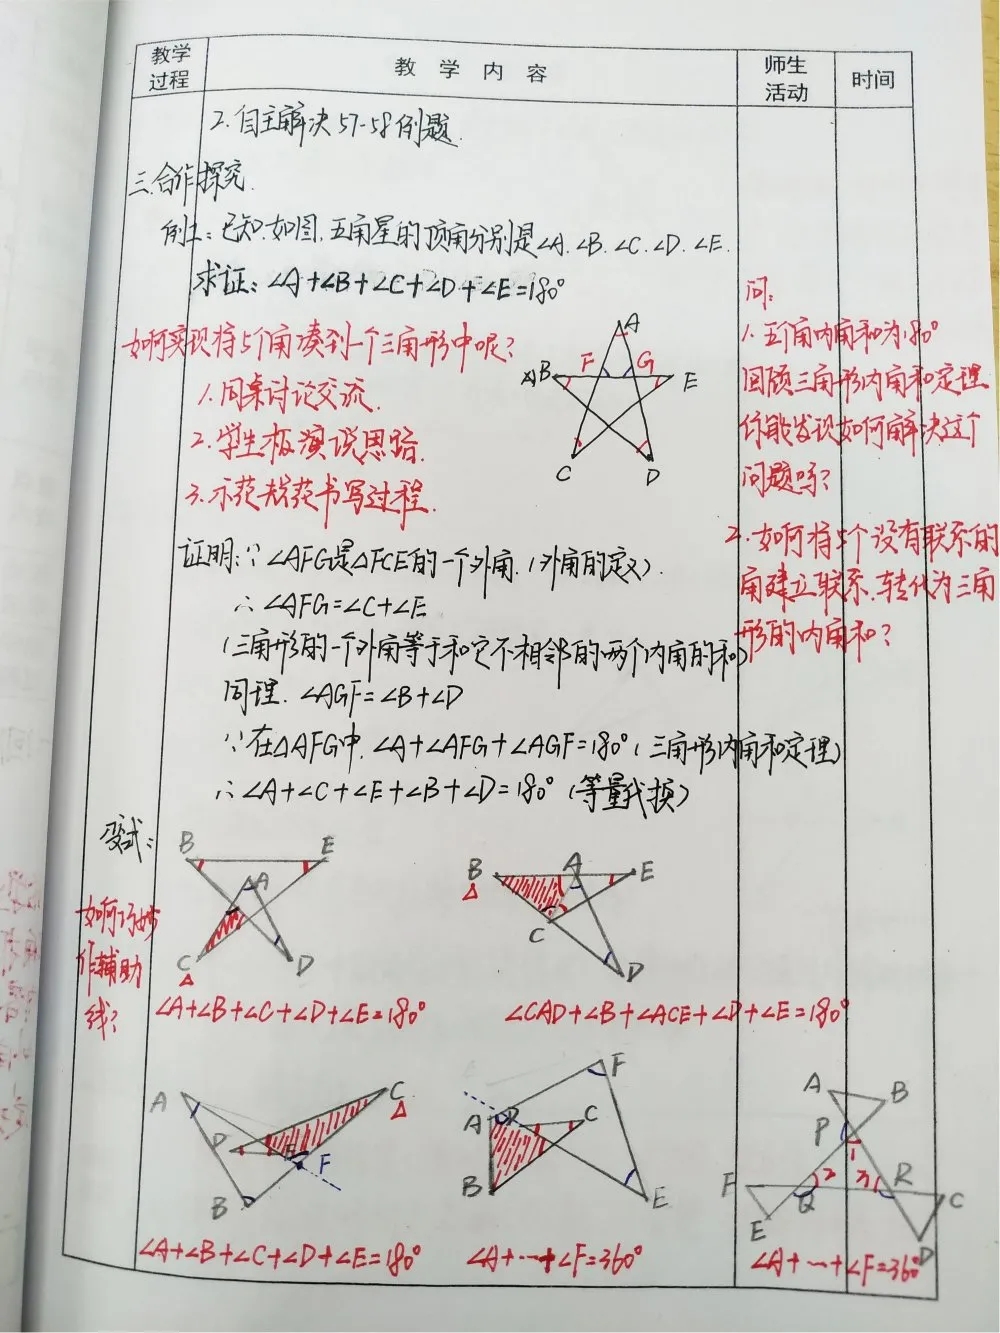 教学过程
教 学 内 容
师生活动
时间
2.自主解决57-58例题.
三.合作探究.
例1:已知.如图.五角星的顶角分别是∠A.∠B.∠C.∠D.∠E.
求证:∠A+∠B+∠C+∠D+∠E=180°
如何实现将5个角凑到一个三角形中呢?
1.同桌讨论交流.
2.学生板演说思路.
3.示范书写过程.
A
B
F
G
E
C
D
问:
1.五个角内角和为180°
回顾三角形内角和定理
你能发现如何解决这个
问题吗?
2.如何将5个没有联系的
角建立联系.转化为三角
形的内角和?
证明:∵∠AFG是△FCE的一个外角.(外角的定义).
∴∠AFG=∠C+∠E
(三角形的一个外角等于和它不相邻的两个内角的和)
同理.∠AGF=∠B+∠D
∵在△AFG中.∠A+∠AFG+∠AGF=180°(三角形内角和定理)
∴∠A+∠C+∠E+∠B+∠D=180°(等量代换)
变式:
如何巧妙
作辅助
线?
B
E
A
C
D
∠A+∠B+∠C+∠D+∠E=180°
B
A
E
C
D
∠CAD+∠B+∠ACE+∠D+∠E=180°
A
C
D
E
F
B
∠A+∠B+∠C+∠D+∠E=180°
F
A
D
C
B
E
∠A+…+∠F=360°
A
B
P
1
2
3
F
Q
R
C
E
D
∠A+…+∠F=360°